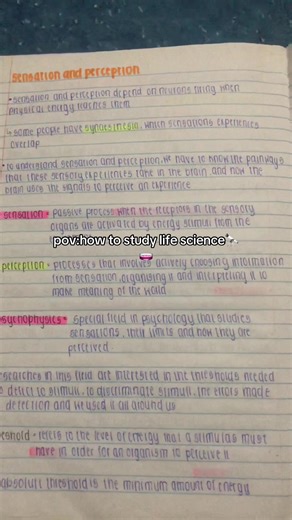 sensation and perception
• sensation and perception depend on neurons firing when
physical energy reaches them
• some people have synesthesia, which sensations experiences
overlap
• to understand sensation and perception, we have to know the pathways
that these sensory experiences take in the brain and how the
brain uses the signals to perceive an experience
sensation • passive process when the receptors in the sensory
organs are activated by energy stimuli from the
pov:how to study life science
perception • processes that involves actively choosing information
from sensation, organising it and interpreting it to
make meaning of the world
psychophysics • special field in psychology that studies
sensations, their limits and how they are
perceived
researchers in this field are interested in the thresholds needed
to detect to stimuli, to discriminate stimuli, the errors made
detection and we used it all around us
threshold • refers to the level of energy that a stimulus must
have in order for an organism to perceive it
absolute threshold is the minimum amount of energy